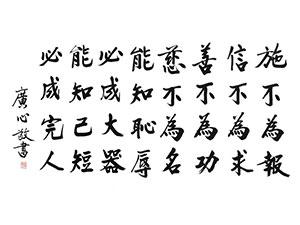 施不為報
信不為求
善不為功
慈不為名
能知恥辱
必成大器
能知己短
必成完人
廣心敬書